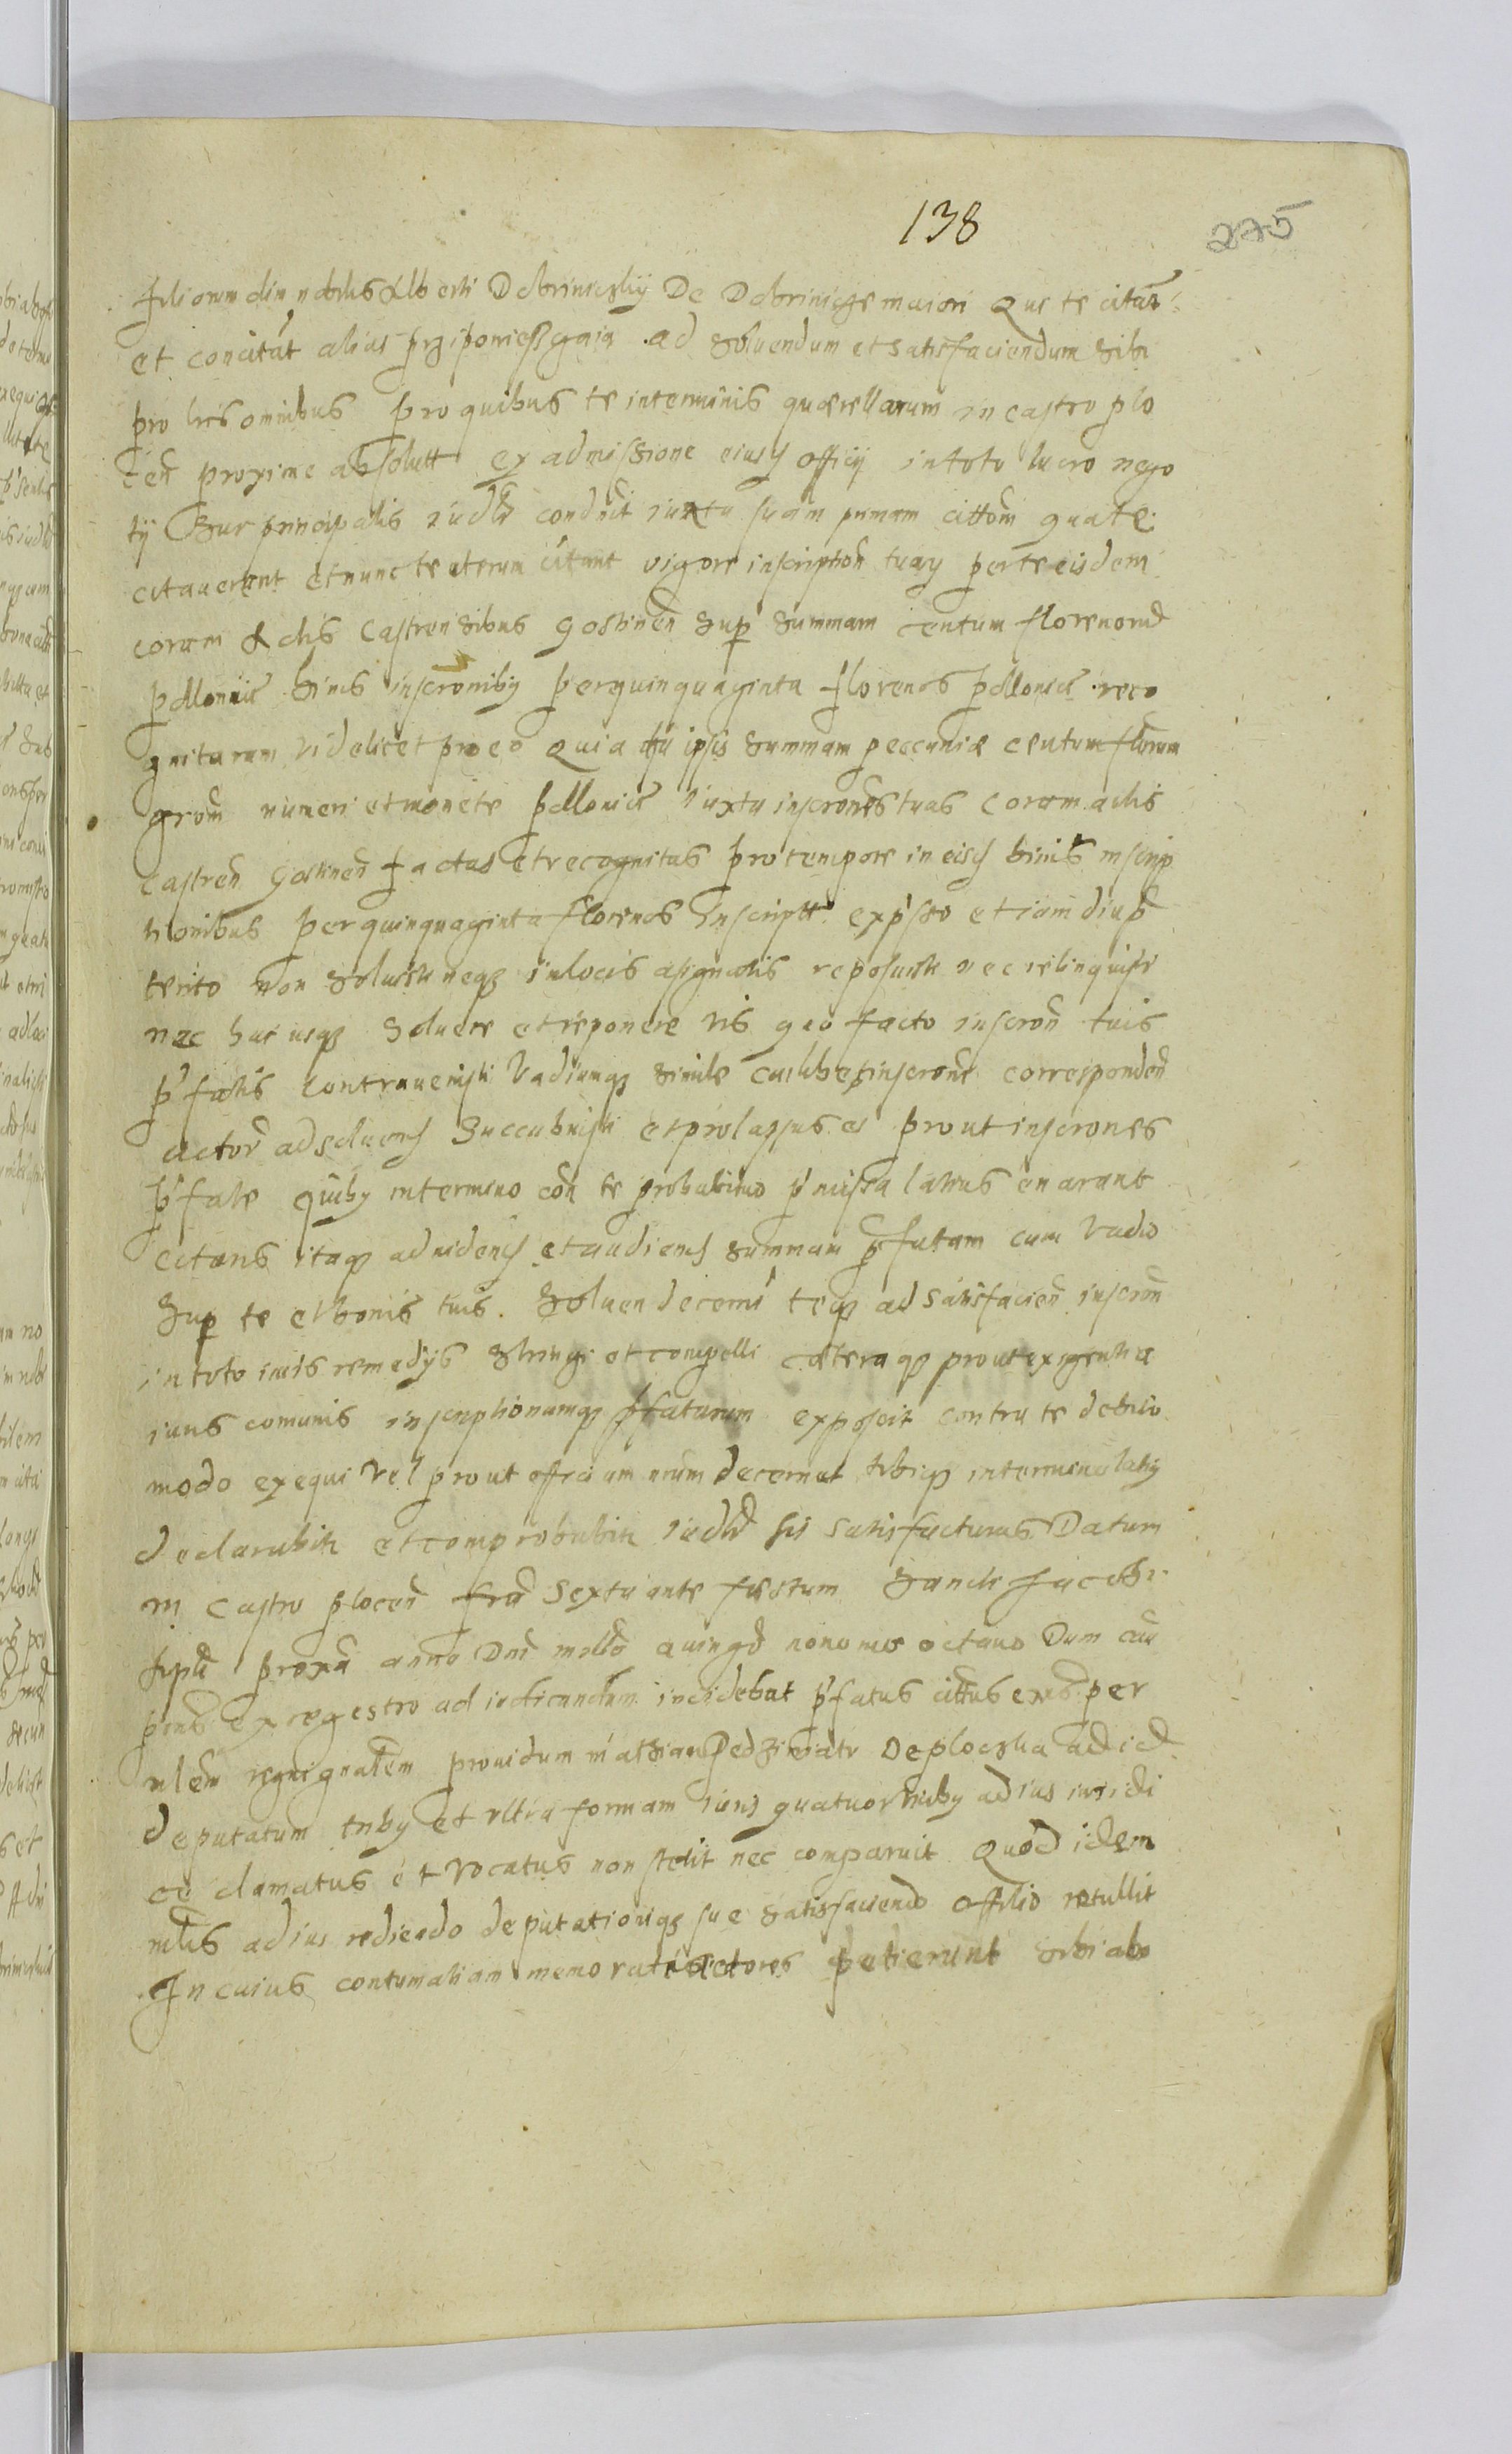 138
275
filiorum olim nobilis Alberti Dobrinieczkij De Dobrinicze maiori Que te citant
et concitant alias prziponieszgaia ad soluendum et satisfaciendum sibi
pro hcis omnibus pro quibus te in terminis quaerellarum in castro plo
cen proxime absolutt ex admissione eiusd officij in toto lucro nego
tij Sur principalis iudlr condnit iuxta suam primam cittom qua te
citauerunt et nunc te iterum citant vigore inscription tuar per te eisdem
coram Actis Castrensibus Gostinen Sup summam centum florenorum
pollonic binis inscronibus per quinquaginta florenos pollonic reco
gnitarum videlicet pro eo Quia tu ipsis summam peccuniae centum florum
grom numeri et monete pollonic iuxta inscrones tuas coram actis
Castren Gostinen factas et recognitas pro tempore in eisd binis inscrip
tionibus per quinquaginta florenos Inscriptt expsso etiam diu p
terito non soluisti neq in locis asignatis reposuisti nec relinquisti
nec huc usq soluere et reponere vis quo facto inscron tuis
pfatis contrauenisti Vadiumq simile cuilibet inscroni corresponden
actor ad soluend Succubuisti et prolapsus es prout inscrones
pfate quibus in termino con te probabitur pmissa latius enarant
Citans itaq ad vidend et audiend summam pfatam cum Vadio
Sup te et bonis tuis Soluen decerni teq ad satisfacien inscron
in toto iuris remedijs stringi et compelli caeteraq prout exigentia
iuris comunis inscriptionumq pfatarum exposcit contra te debito
modo exequi vel prout officium nrum decernet tibiq in termino latius
declarabitur et comprobabitur iudlr sis satisfacturus Datum
in Castro plocen fria Sexta ante festum Sancti Jacobi
Apli proxa anno Dni millo quingo nonomo octauo Dum cau
pens ex regestro ad iudicandum incidebat pfatus cittus exns per
mlem regni gnalem prouidum Mathiam Pedziwiatr De ploczka ad id
deputatum tribus et vltra formam iuris quatuor vicibus ad ius iudi
ce clamatus et vocatus non stetit nec comparuit Quod idem
mlis ad ius rediendo deputationiq sue satisfaciendo Officio retullit
In cuius contumatiam memorati actores petierunt sibi ab